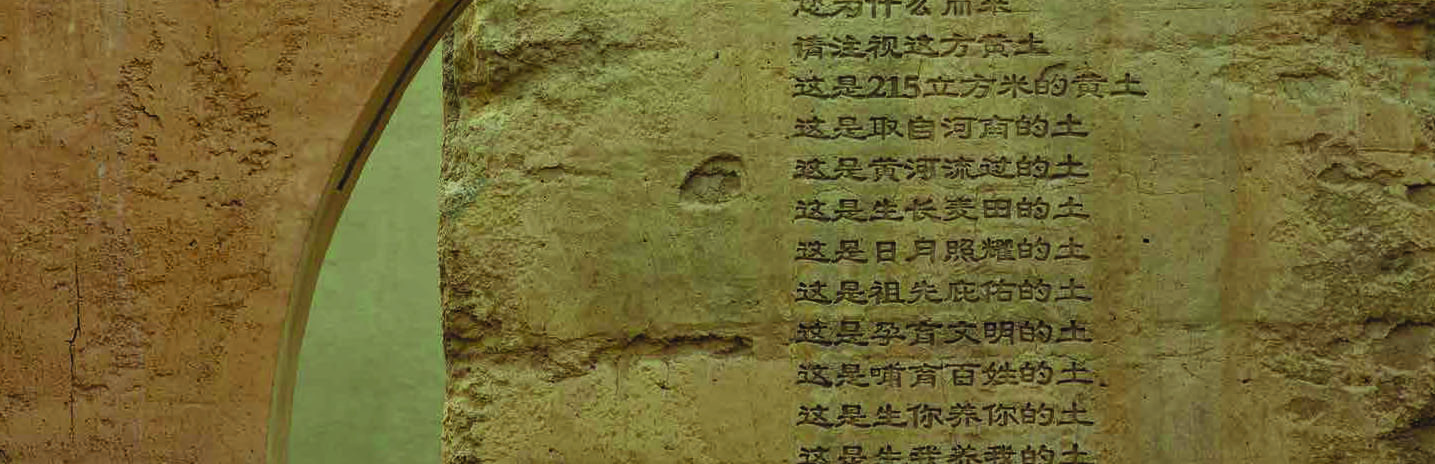 您为什么而来
请注视这方黄土
这是215立方米的黄土
这是取自河南的土
这是黄河流过的土
这是生长麦田的土
这是日月照耀的土
这是祖先庇佑的土
这是孕育文明的土
这是哺育百姓的土
这是生你养你的土
这是生我养我的土